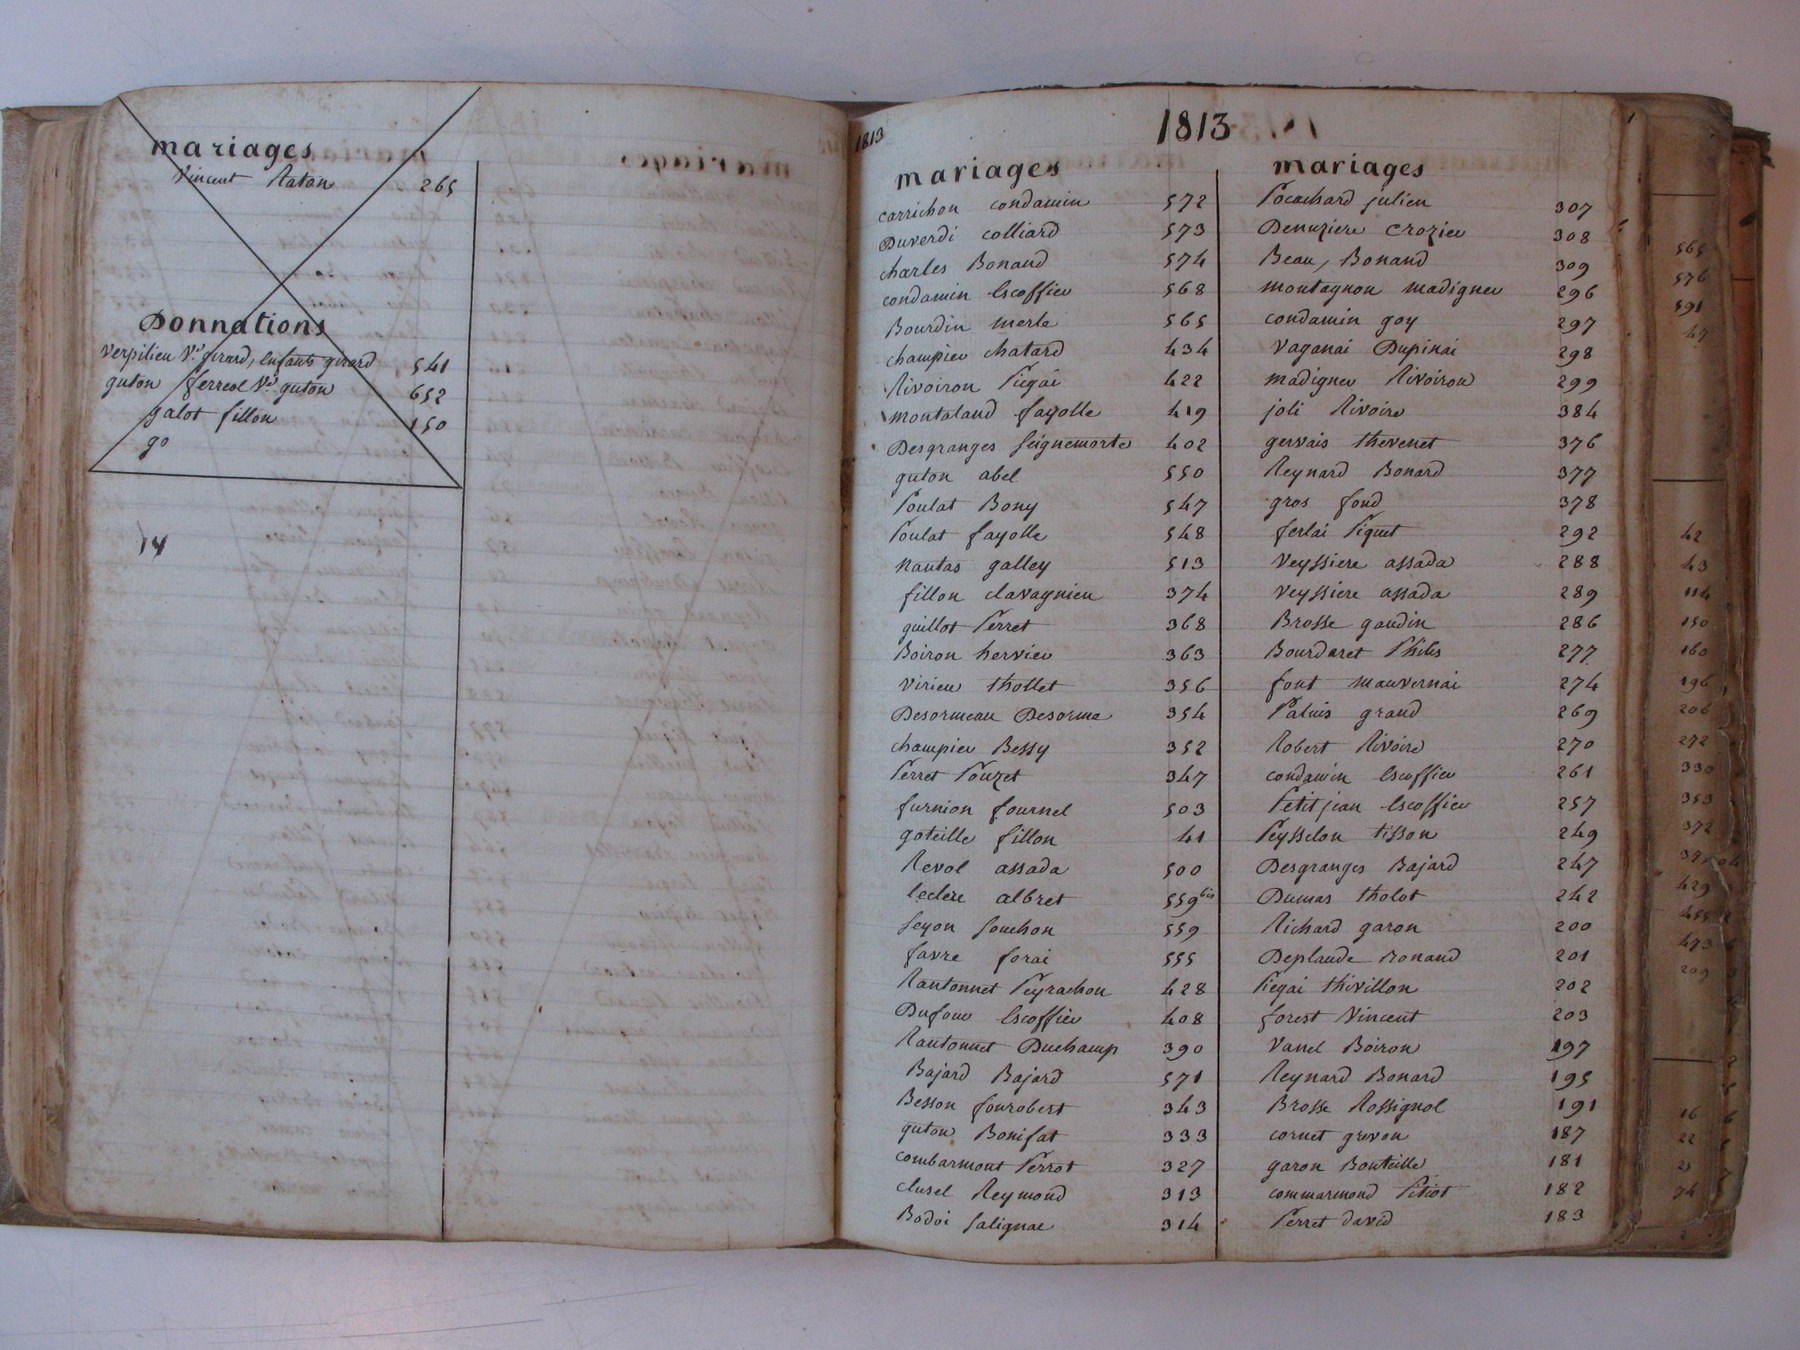 mariages
Vincent Ratan 265
Donnations
Verpilieu Ve girard, enfants girard 541
guton ferreol Ve guton 652
galot fillon 150
go
14
1813
1813
mariages
carrichon condamin 572
Duverdi colliard 573
charles Bonand 574
condamin Escoffier 568
Bourdin merle 565
champier chatard 434
Rivoiron Piegai 422
montaland fayolle 419
Desgranges Seignemorte 402
guton abel 550
Poulat Bony 547
Poulat fayolle 548
nantas galley 513
fillon clavagnieu 374
guillot Perret 368
Boiron hervier 363
Virieu thollet 356
Desormeau Desorme 354
champier Bessy 352
Perret Pouzet 347
furnion fournel 503
goteille fillon 41
Revol assada 500
leclerc albret 559 bis
Seyon Souchon 559
favre forai 555
Rantonnet Peyrachon 428
Dufour Escoffier 408
Rantonnet Duchamp 390
Bajard Bajard 571
Besson fourobert 343
guton Bonifat 333
combarmont Perrot 327
clusel Reymond 313
Bodoi Salignac 314
mariages
Pocachard julien 307
Denuziere crozier 308
Beau, Bonand 309
montagnon madignier 296
condamin goy 297
vaganai Dupinai 298
madignier Rivoiron 299
joli Rivoire 384
gervais thevenet 376
Reynard Bonard 377
gros fond 378
ferlai Piquet 292
veyssiere assada 288
veyssiere assada 289
Brosse gaudin 286
Bourdaret Philis 277
font mauvernai 274
Paluis grand 269
Robert Rivoire 270
condamin Escoffier 261
Petit jean Escoffier 257
Peysselon tisson 249
Desgranges Bajard 247
Dumas tholot 242
Richard garon 200
Deplaude Bonand 201
Piegai thivillon 202
forest Vincent 203
Vanel Boiron 197
Reynard Bonard 195
Brosse Rossignol 191
cornet grivon 187
garon Bouteille 181
commarmond Pitiot 182
Perret david 183
565
576
591
47
42
43
114
150
160
196
206
272
330
353
372
429
455
473
209
16
22
74